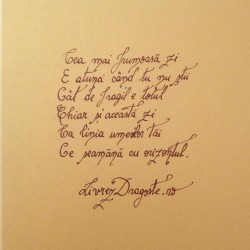 Cea mai frumoasă zi
E atunci când tu nu știi
Cât de fragil e totul
Chiar și această zi
Ca linia umerilor tăi
Ce seamănă cu orizontul.
LivrezDragoste.ro